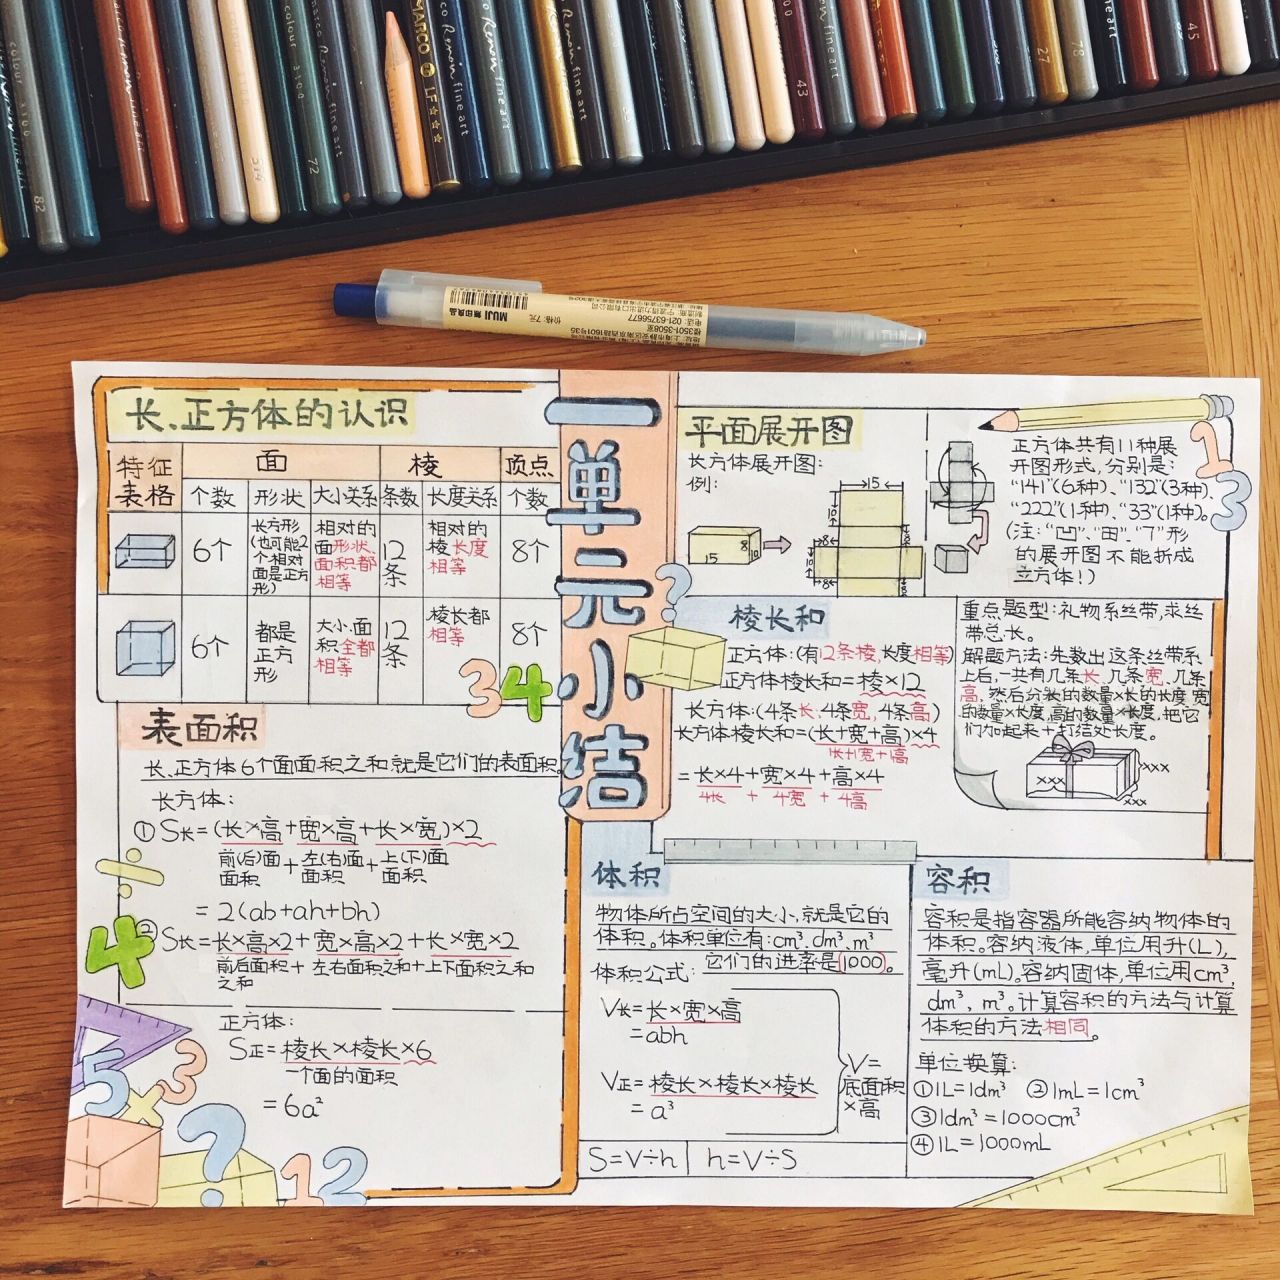 colour 3100
82
514
72
MARCO LF
Renon fineart
Renon fineart
43
27
78
45
MUJI 無印良品
价格: 7元
电话: 021-63756677
长、正方体的认识
特征
表格
面
棱
顶点
个数
形状
大小关系
条数
长度关系
个数
6个
长方形
(也可能2
个相对
面是正方
形)
相对的
面形状、
面积都
相等
12
条
相对的
棱长度
相等
8个
6个
都是
正方
形
大小面
积全都
相等
12
条
棱长都
相等
8个
34
表面积
长、正方体6个面面积之和就是它们的表面积。
长方体:
①S长=(长×高+宽×高+长×宽)×2
前(后)面面积+左(右)面面积+上(下)面面积
=2(ab+ah+bh)
②S长=长×高×2+宽×高×2+长×宽×2
前后面积之和+左右面积之和+上下面积之和
正方体:
S正=棱长×棱长×6
一个面的面积
=6a²
÷
4
5×3
?
12
一单元小结
?
平面展开图
长方体展开图:
例:
15
8
10
15
10
8
10
8
8
正方体共有11种展
开图形式,分别是:
"141"(6种)、"132"(3种)、
"222"(1种)、"33"(1种)。
(注:"凹"、"田"、"7"形
的展开图不能折成
立方体!)
1
3
棱长和
正方体:(有12条棱,长度相等)
正方体棱长和=棱×12
长方体:(4条长、4条宽,4条高)
长方体棱长和=(长+宽+高)×4
1长+1宽+1高
=长×4+宽×4+高×4
4长+4宽+4高
重点题型:礼物系丝带,求丝
带总长。
解题方法:先数出这条丝带系
上后,一共有几条长、几条宽、几条
高,然后分别长的数量×长的长度,宽
的数量×长度,高的数量×长度,把它
们加起来+打结处长度。
×××
×××
×××
体积
物体所占空间的大小,就是它的
体积。体积单位有:cm³、dm³、m³
它们的进率是1000。
体积公式:
V长=长×宽×高
=abh
V正=棱长×棱长×棱长
=a³
V=
底面积
×高
S=V÷h
h=V÷S
容积
容积是指容器所能容纳物体的
体积。容纳液体,单位用升(L),
毫升(mL)。容纳固体,单位用cm³,
dm³,m³。计算容积的方法与计算
体积的方法相同。
单位换算:
①1L=1dm³ ②1mL=1cm³
③1dm³=1000cm³
④1L=1000mL